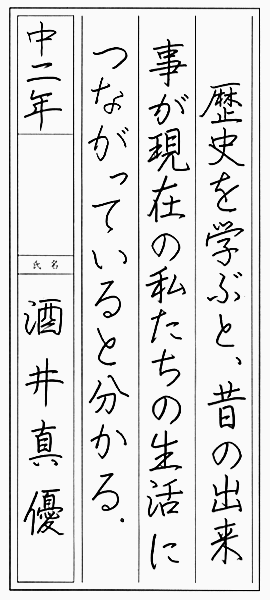 歴史を学ぶと、昔の出来
事が現在の私たちの生活に
つながっていると分かる.
中二年
氏名
酒井真優